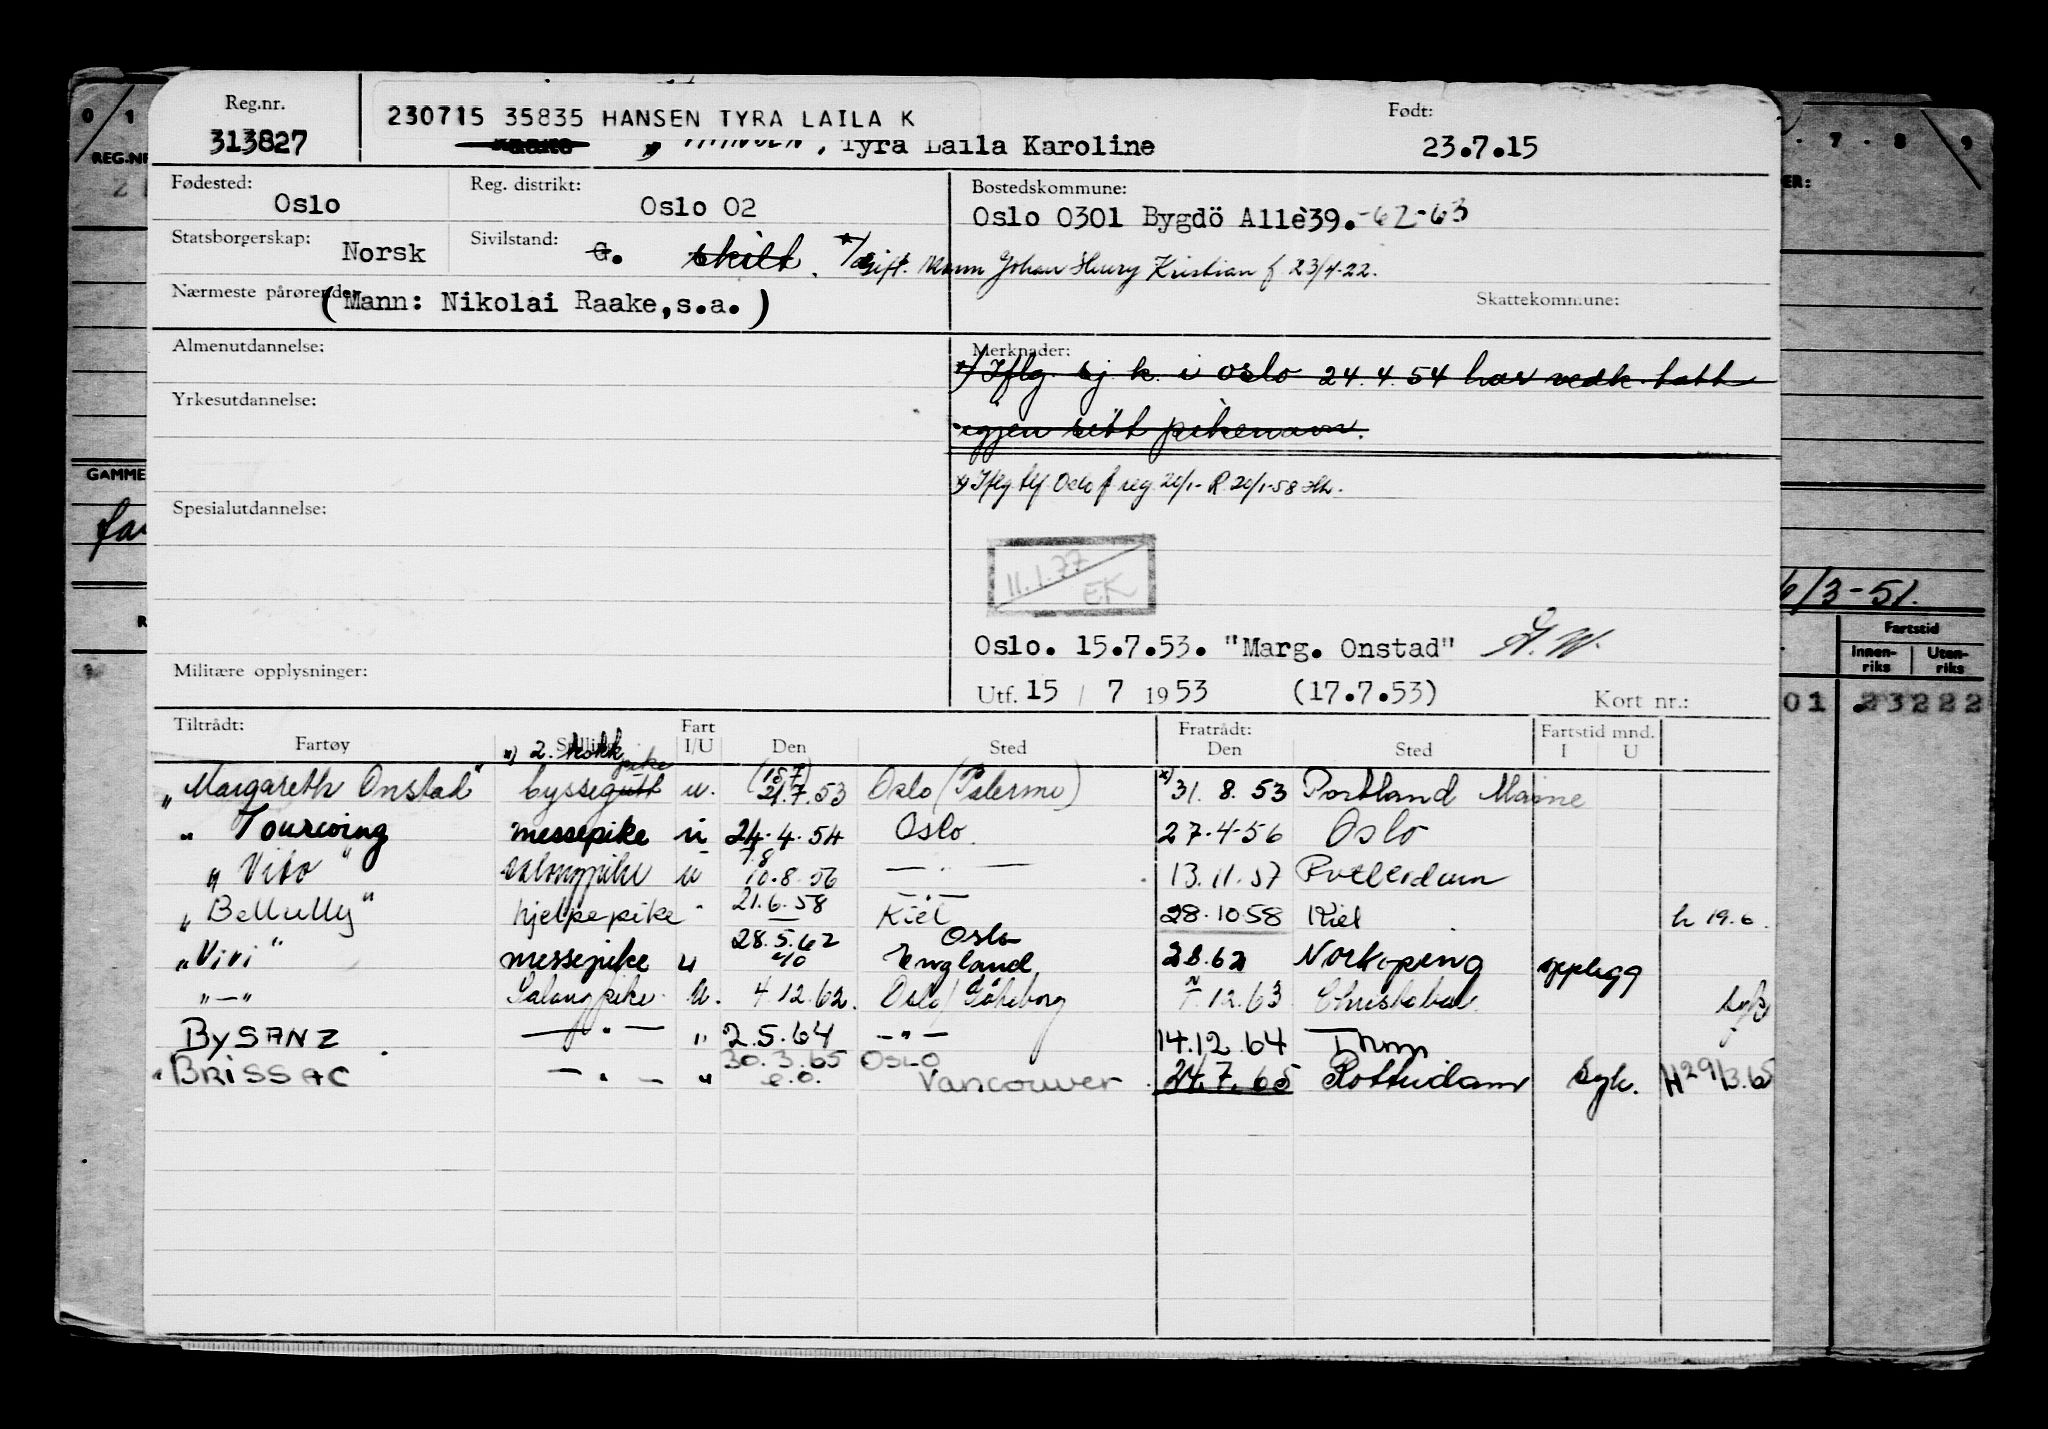 Reg.nr.
313827
230715 35835 HANSEN TYRA LAILA K
HANSEN, Tyra Laila Karoline
Født:
23.7.15
Fødested:
Oslo
Reg. distrikt:
Oslo 02
Bostedskommune:
Oslo 0301 Bygdö Allè39.-62-63
Statsborgerskap:
Norsk
Sivilstand:
G. skilt. x/ Gift. Mann Johan Henry Kristian f. 23/4-22.
Nærmeste pårørende
(Mann: Nikolai Raake,s.a.)
Skattekommune:
Almenutdannelse:
Yrkesutdannelse:
Spesialutdannelse:
Militære opplysninger:
Merknader:
x) Iflg. sj.k. i oslo 24.4.54 har vedk. tatt
igjen sitt pikenavn.
x) Iflg. tlf Oslo f reg. 20/1- R 20/1-58
11.1.77
EK
Oslo. 15.7.53. "Marg. Onstad" A.W.
Utf. 15 / 7 1953 (17.7.53)
Kort nr.:
Tiltrådt:
Fartøy
Stilling
Fart
I/U
Den
Sted
Fratrådt:
Den
Sted
Fartstid mnd.
I U
x) 2. kokk
"Margareth Onstad" byssegutt pike u. (15.7) 21.7.53 Oslo (Palermo) x) 31.8.53 Portland Maine
" Tourcoing messepike u 24.4.54 Oslo 27.4.56 Oslo
" Vito " salongpike u 7.8 10.8.56 — " — 13.11.57 Rotterdam
"Bellully" hjelpepike " 21.6.58 Kiel 28.10.58 Kiel h 19.6.
"Vivi" messepike u 28.5.62 Oslo England 28.62 Norköping opplegg
" — " Salongpike. U. 4.12.62. Oslo/Göteborg 7.12.63 Christobal
BYSANZ — " — " 2.5.64 — " — 14.12.64
" BRISSAC — " — " 30.3.65 OSLO e.o. Vancouver 24.7.65 Rotterdam Syk. H 29/3.65
0 1
REG.NR
GAMME
7 8 9
6/3-51.
Fartstid
Innen-
riks
Uten-
riks
01 23222